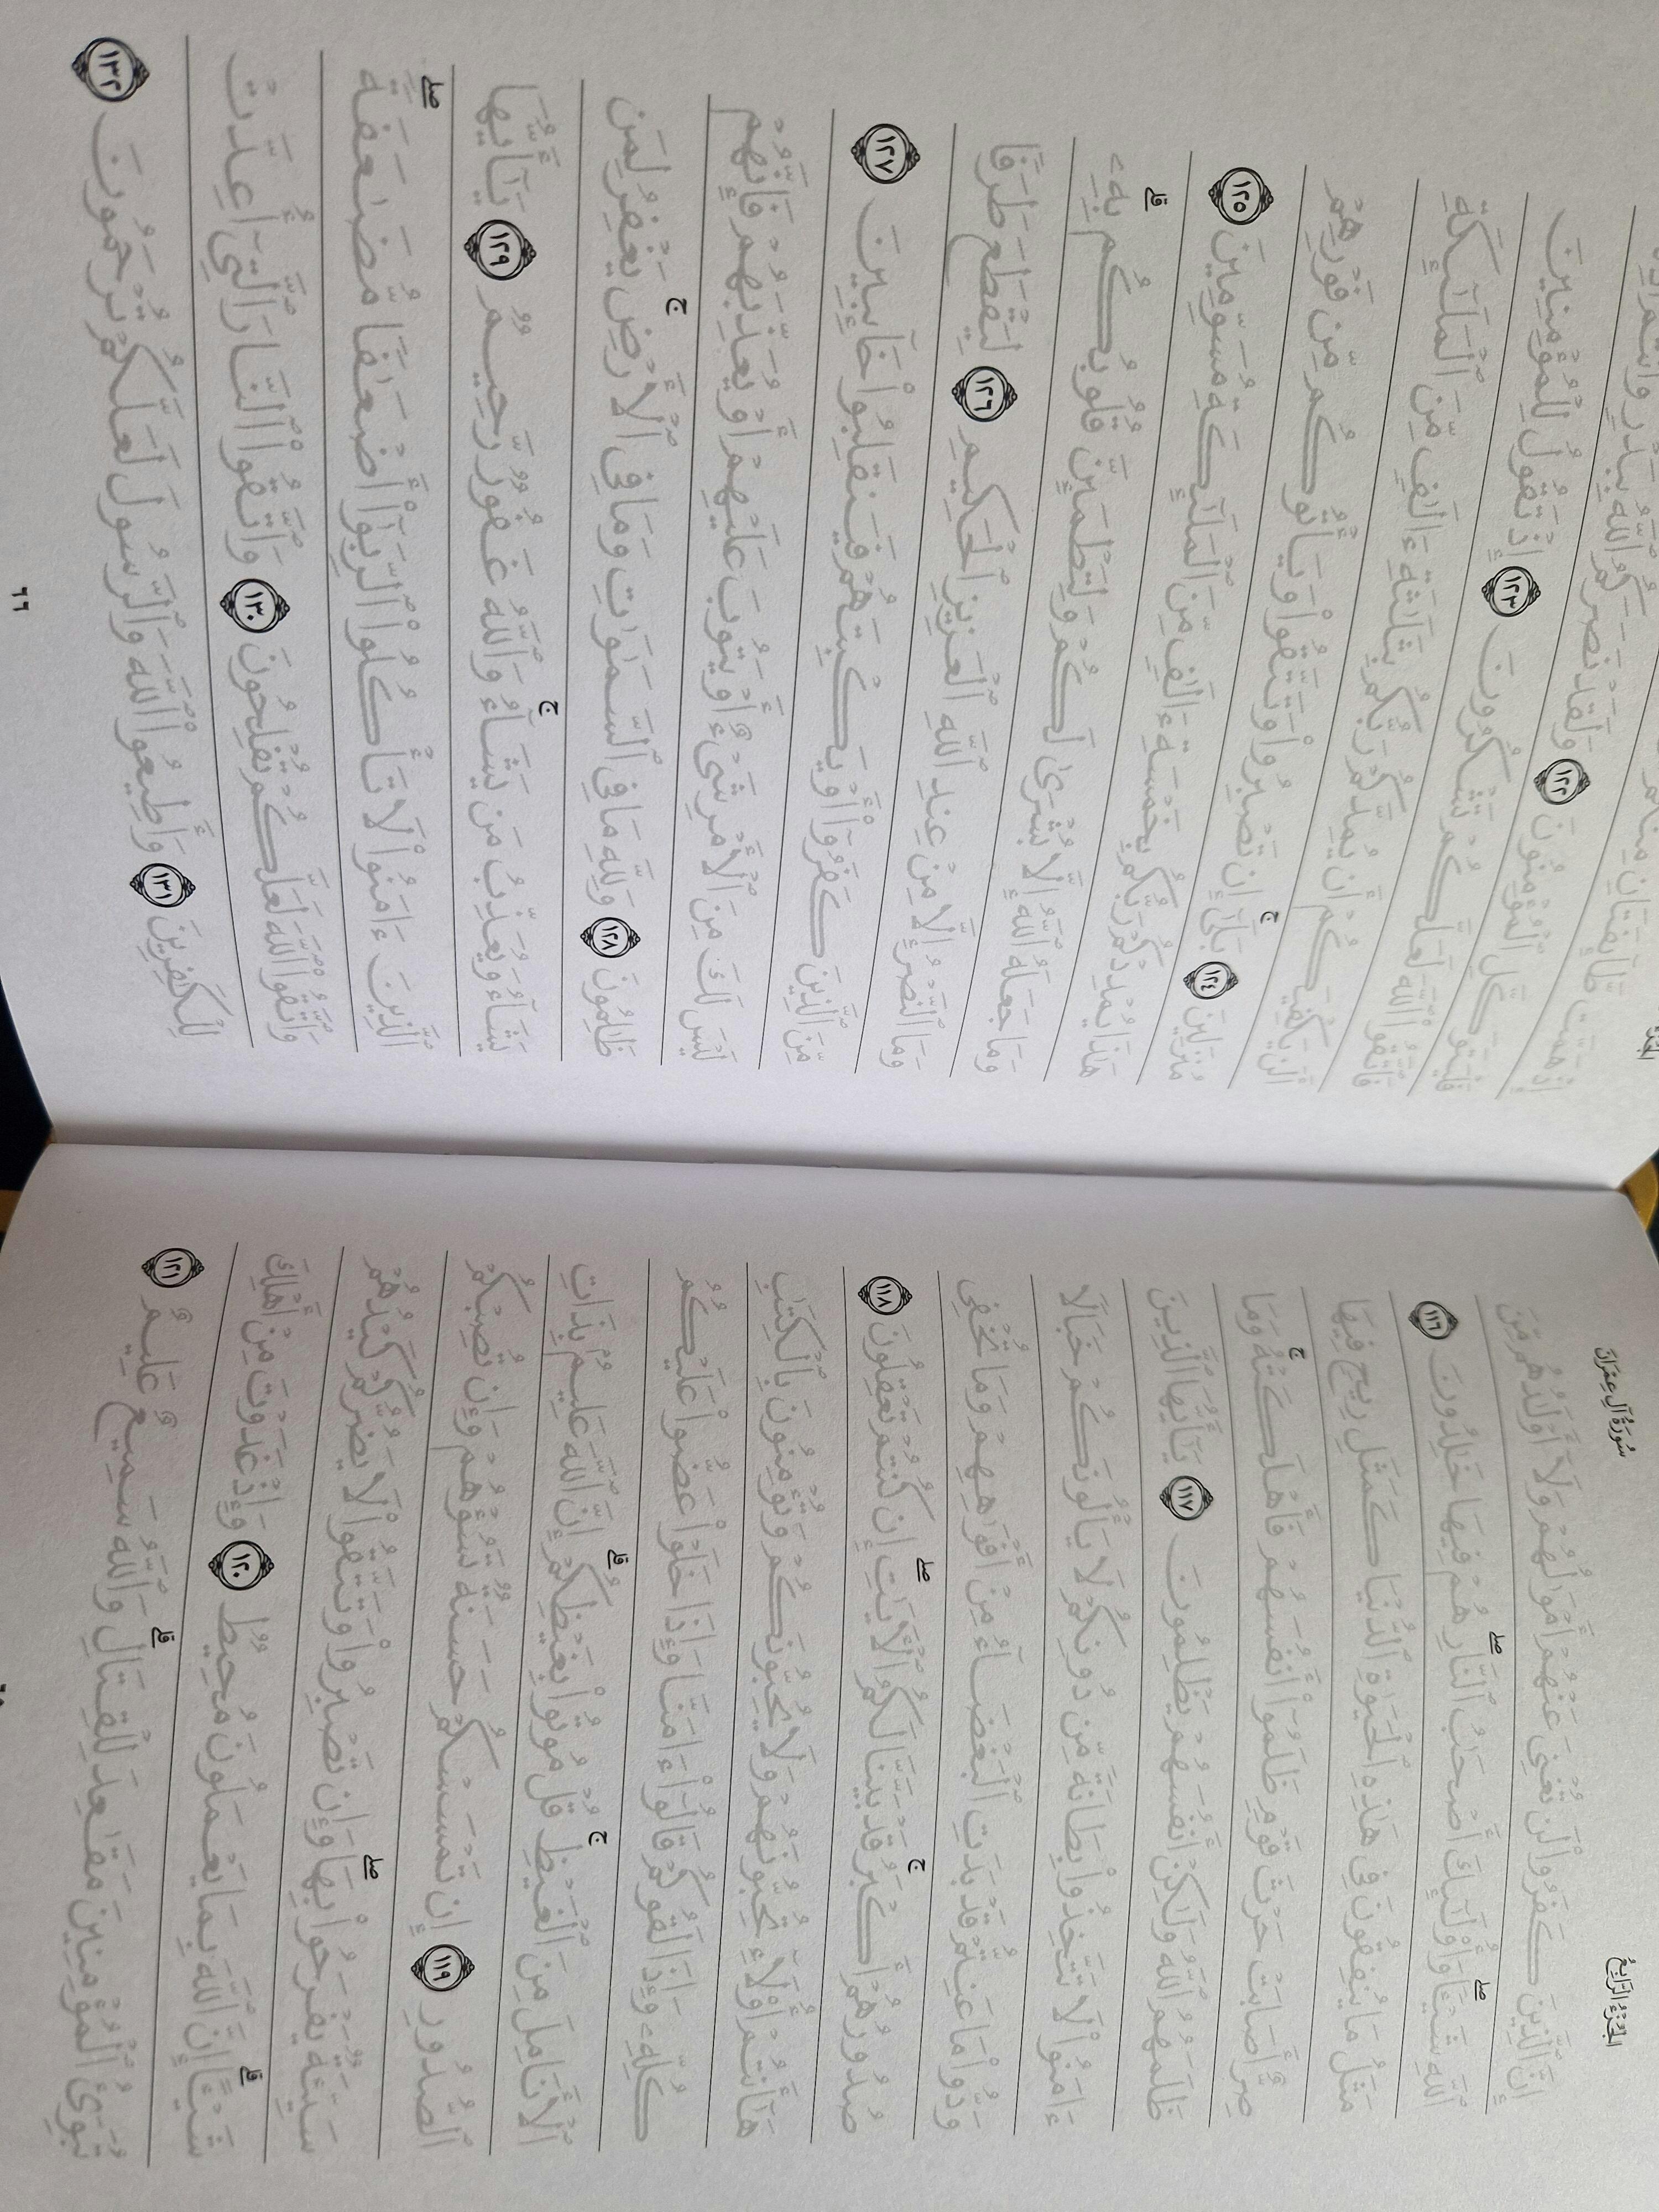 سُورَةُ آلِ عِمْرَانَ
الجُزْءُ الرَّابِعُ
إِنَّ ٱلَّذِينَ كَفَرُوا۟ لَن تُغْنِىَ عَنْهُمْ أَمْوَٰلُهُمْ وَلَآ أَوْلَٰدُهُم مِّنَ
ٱللَّهِ شَيْـًٔا ۖ وَأُو۟لَٰٓئِكَ أَصْحَٰبُ ٱلنَّارِ ۖ هُمْ فِيهَا خَٰلِدُونَ ١١٦
مَثَلُ مَا يُنفِقُونَ فِى هَٰذِهِ ٱلْحَيَوٰةِ ٱلدُّنْيَا كَمَثَلِ رِيحٍ فِيهَا
صِرٌّ أَصَابَتْ حَرْثَ قَوْمٍ ظَلَمُوٓا۟ أَنفُسَهُمْ فَأَهْلَكَتْهُ ۚ وَمَا
ظَلَمَهُمُ ٱللَّهُ وَلَٰكِنْ أَنفُسَهُمْ يَظْلِمُونَ ١١٧ يَٰٓأَيُّهَا ٱلَّذِينَ
ءَامَنُوا۟ لَا تَتَّخِذُوا۟ بِطَانَةً مِّن دُونِكُمْ لَا يَأْلُونَكُمْ خَبَالًا
وَدُّوا۟ مَا عَنِتُّمْ قَدْ بَدَتِ ٱلْبَغْضَآءُ مِنْ أَفْوَٰهِهِمْ وَمَا تُخْفِى
صُدُورُهُمْ أَكْبَرُ ۚ قَدْ بَيَّنَّا لَكُمُ ٱلْـَٔايَٰتِ ۖ إِن كُنتُمْ تَعْقِلُونَ ١١٨
هَٰٓأَنتُمْ أُو۟لَآءِ تُحِبُّونَهُمْ وَلَا يُحِبُّونَكُمْ وَتُؤْمِنُونَ بِٱلْكِتَٰبِ
كُلِّهِۦ وَإِذَا لَقُوكُمْ قَالُوٓا۟ ءَامَنَّا وَإِذَا خَلَوْا۟ عَضُّوا۟ عَلَيْكُمُ
ٱلْأَنَامِلَ مِنَ ٱلْغَيْظِ ۚ قُلْ مُوتُوا۟ بِغَيْظِكُمْ ۗ إِنَّ ٱللَّهَ عَلِيمٌۢ بِذَاتِ
ٱلصُّدُورِ ١١٩ إِن تَمْسَسْكُمْ حَسَنَةٌ تَسُؤْهُمْ وَإِن تُصِبْكُمْ
سَيِّئَةٌ يَفْرَحُوا۟ بِهَا ۖ وَإِن تَصْبِرُوا۟ وَتَتَّقُوا۟ لَا يَضُرُّكُمْ كَيْدُهُمْ
شَيْـًٔا ۗ إِنَّ ٱللَّهَ بِمَا يَعْمَلُونَ مُحِيطٌ ١٢٠ وَإِذْ غَدَوْتَ مِنْ أَهْلِكَ
تُبَوِّئُ ٱلْمُؤْمِنِينَ مَقَٰعِدَ لِلْقِتَالِ ۗ وَٱللَّهُ سَمِيعٌ عَلِيمٌ ١٢١
إِذْ هَمَّت طَّآئِفَتَانِ مِنكُمْ
فَلْيَتَوَكَّلِ ٱلْمُؤْمِنُونَ ١٢٢ وَلَقَدْ نَصَرَكُمُ ٱللَّهُ بِبَدْرٍ وَأَنتُمْ أَذِلَّةٌ
فَٱتَّقُوا۟ ٱللَّهَ لَعَلَّكُمْ تَشْكُرُونَ ١٢٣ إِذْ تَقُولُ لِلْمُؤْمِنِينَ
أَلَن يَكْفِيَكُمْ أَن يُمِدَّكُمْ رَبُّكُم بِثَلَٰثَةِ ءَالَٰفٍ مِّنَ ٱلْمَلَٰٓئِكَةِ
مُنزَلِينَ ١٢٤ بَلَىٰٓ ۚ إِن تَصْبِرُوا۟ وَتَتَّقُوا۟ وَيَأْتُوكُم مِّن فَوْرِهِمْ
هَٰذَا يُمْدِدْكُمْ رَبُّكُم بِخَمْسَةِ ءَالَٰفٍ مِّنَ ٱلْمَلَٰٓئِكَةِ مُسَوِّمِينَ ١٢٥
وَمَا جَعَلَهُ ٱللَّهُ إِلَّا بُشْرَىٰ لَكُمْ وَلِتَطْمَئِنَّ قُلُوبُكُم بِهِۦ ۗ
وَمَا ٱلنَّصْرُ إِلَّا مِنْ عِندِ ٱللَّهِ ٱلْعَزِيزِ ٱلْحَكِيمِ ١٢٦ لِيَقْطَعَ طَرَفًا
مِّنَ ٱلَّذِينَ كَفَرُوٓا۟ أَوْ يَكْبِتَهُمْ فَيَنقَلِبُوا۟ خَآئِبِينَ ١٢٧
لَيْسَ لَكَ مِنَ ٱلْأَمْرِ شَىْءٌ أَوْ يَتُوبَ عَلَيْهِمْ أَوْ يُعَذِّبَهُمْ فَإِنَّهُمْ
ظَٰلِمُونَ ١٢٨ وَلِلَّهِ مَا فِى ٱلسَّمَٰوَٰتِ وَمَا فِى ٱلْأَرْضِ ۚ يَغْفِرُ لِمَن
يَشَآءُ وَيُعَذِّبُ مَن يَشَآءُ ۚ وَٱللَّهُ غَفُورٌ رَّحِيمٌ ١٢٩ يَٰٓأَيُّهَا
ٱلَّذِينَ ءَامَنُوا۟ لَا تَأْكُلُوا۟ ٱلرِّبَوٰٓا۟ أَضْعَٰفًا مُّضَٰعَفَةً ۖ
وَٱتَّقُوا۟ ٱللَّهَ لَعَلَّكُمْ تُفْلِحُونَ ١٣٠ وَٱتَّقُوا۟ ٱلنَّارَ ٱلَّتِىٓ أُعِدَّتْ
لِلْكَٰفِرِينَ ١٣١ وَأَطِيعُوا۟ ٱللَّهَ وَٱلرَّسُولَ لَعَلَّكُمْ تُرْحَمُونَ ١٣٢
٦٦